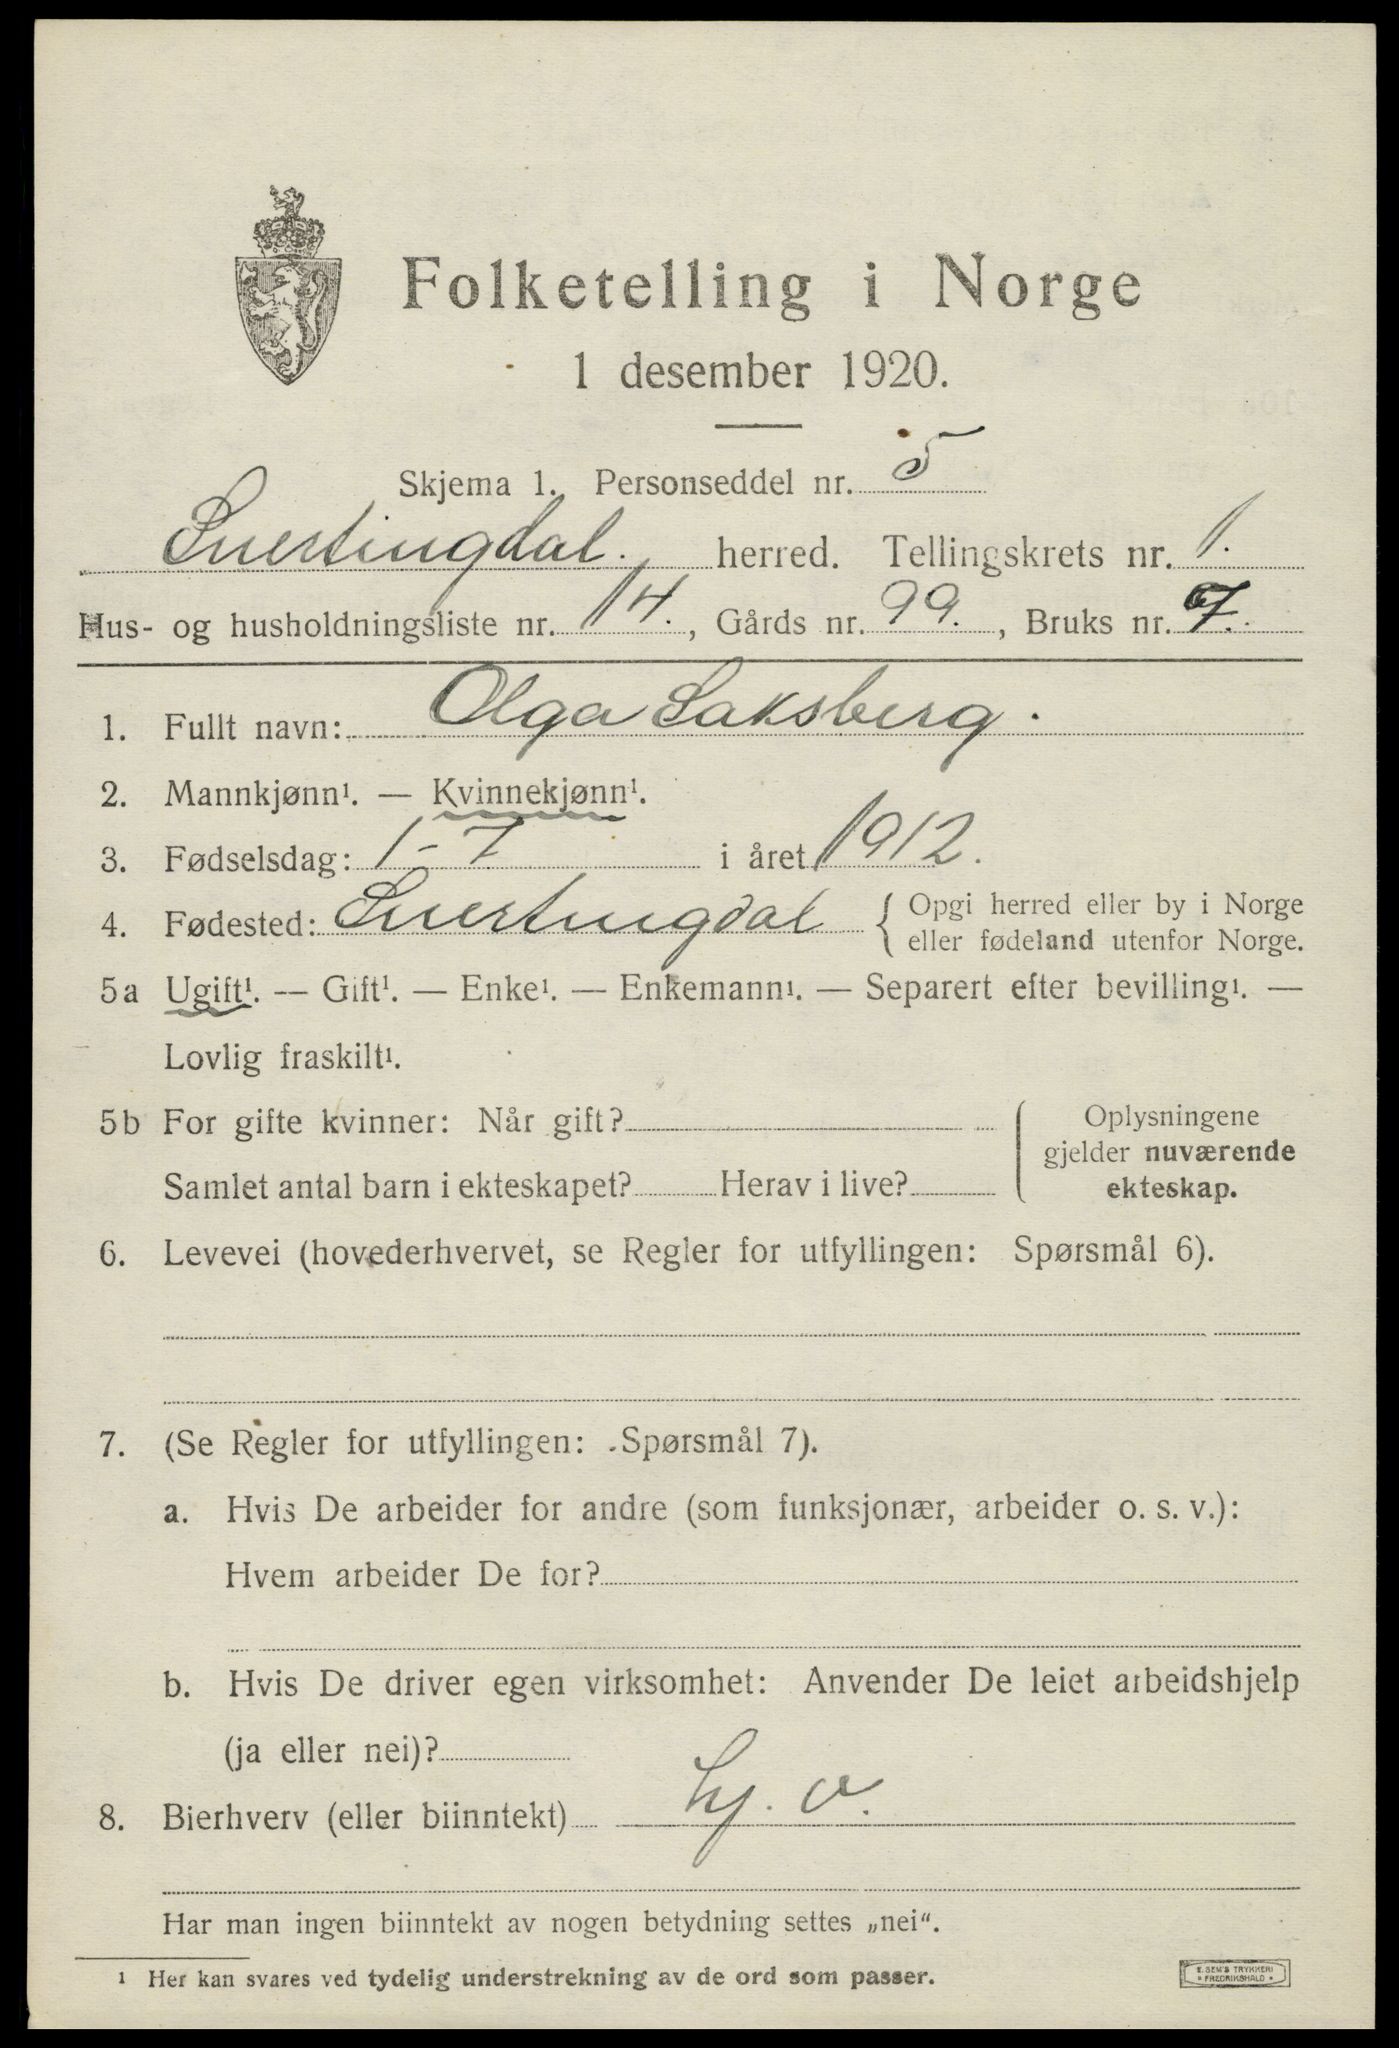 Folketelling i Norge
1 desember 1920.
Skjema 1. Personseddel nr. 5
Snertingdal. herred. Tellingskrets nr. 1.
Hus- og husholdningsliste nr. 14., Gårds nr. 99., Bruks nr. 7.
1. Fullt navn: Olga Saksberg.
2. Mannkjønn¹. — Kvinnekjønn¹.
3. Fødselsdag: 1-7 i året 1912.
4. Fødested: Snertingdal { Opgi herred eller by i Norge
eller fødeland utenfor Norge.
5a Ugift¹. — Gift¹. — Enke¹. — Enkemann¹. — Separert efter bevilling¹. —
Lovlig fraskilt¹.
5b For gifte kvinner: Når gift?
Samlet antal barn i ekteskapet? Herav i live?
Oplysningene
gjelder nuværende
ekteskap.
6. Levevei (hovederhvervet, se Regler for utfyllingen: Spørsmål 6).
7. (Se Regler for utfyllingen: Spørsmål 7).
a. Hvis De arbeider for andre (som funksjonær, arbeider o. s. v.):
Hvem arbeider De for?
b. Hvis De driver egen virksomhet: Anvender De leiet arbeidshjelp
(ja eller nei)?
8. Bierhverv (eller biinntekt)
Har man ingen biinntekt av nogen betydning settes „nei“.
¹ Her kan svares ved tydelig understrekning av de ord som passer.
E. SEM'S TRYKKERI
* FREDRIKSHALD *